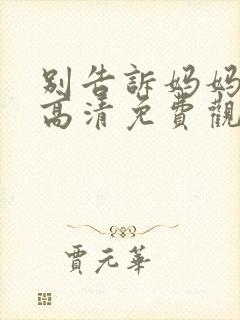 別告訴妈妈
高清免費觀
賈元華